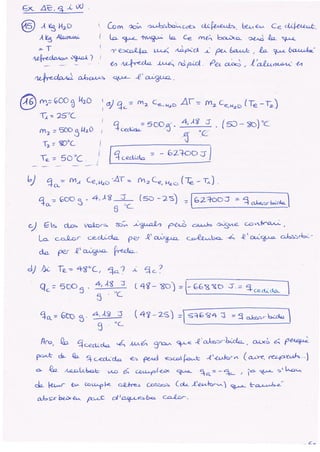 Ex ΔE, q i W.
15) 1 Kg H₂O | Com són substàncies diferents, tenen Ce diferent.
1 Kg Alumini | La que tingui la Ce més baixa serà la que
= T | s'escalfa més ràpid i per tant, la que també
refredaran igual? | es refreda més ràpid. Per això, l'alumini es
refredarà abans que l'aigua.
16) m₁=600 g H₂O | a) q_c = m₂ Ce,H₂O ΔT = m₂ Ce,H₂O (Te - T₂)
T₁ = 25°C
m₂ = 500 g H₂O | q cedida = 500 g · 4,18 J / g °C · (50 - 80)°C
T₂ = 80°C
Te = 50°C | q cedida = - 62700 J
b) q_a = m₁ Ce,H₂O · ΔT = m₁ Ce,H₂O (Te - T₁)
q_a = 600 g · 4,18 J / g °C (50 - 25) = 62700 J = q absorbida
c) Els dos valors són iguals però amb signe contrari,
La calor cedida per l'aigua calenta és l'aigua absorbi-
da per l'aigua freda.
d) Si Te = 48°C, q_a? i q_c?
q_c = 500 g · 4,18 J / g °C (48 - 80) = -66880 J = q cedida
q_a = 600 g · 4,18 J / g °C (48 - 25) = 57684 J = q absorbida
Ara, la q cedida és més gran que l'absorbida, això és perquè
part de la q cedida es perd escalfant l'entorn (aire, recipients...)
a la realitat no és compleix que q_a = -q_c, ja que s'han
de tenir en compte altres coses (de l'entorn) que també
absorbeixen part d'aquesta calor.